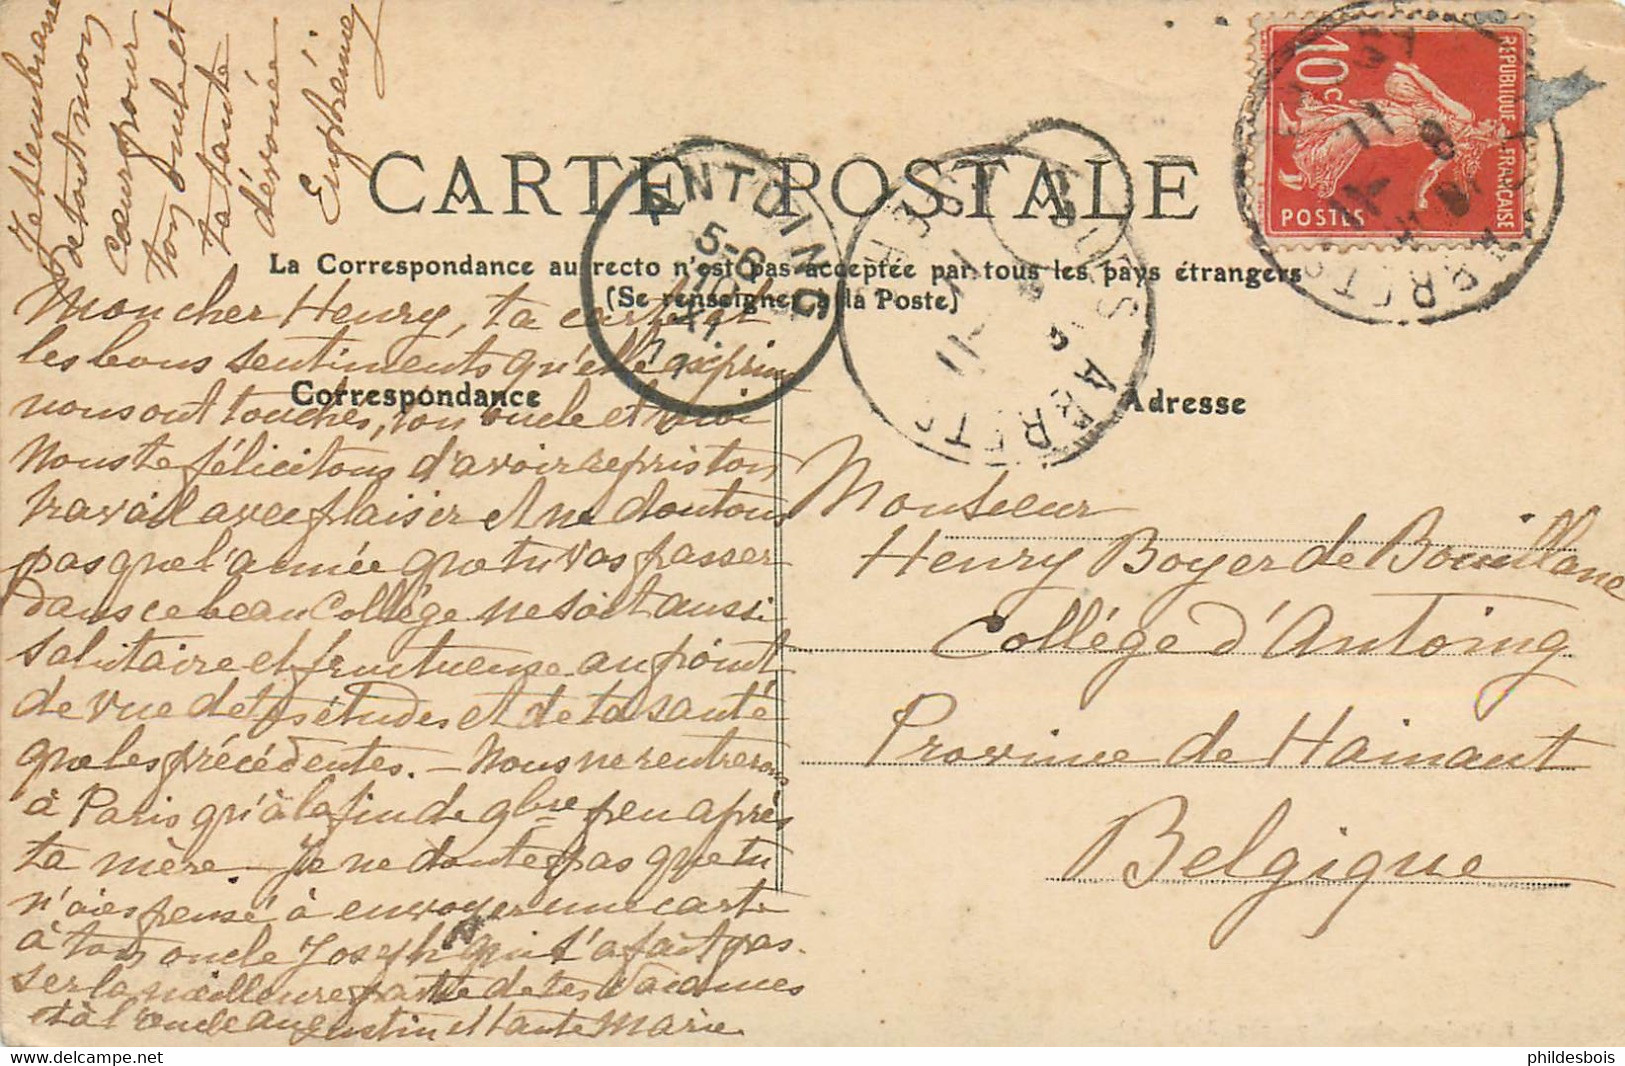 CARTE POSTALE
La Correspondance au recto n'est pas acceptée par tous les pays étrangers
(Se renseigner à la Poste)
Correspondance
Adresse
REPUBLIQUE FRANÇAISE
10c
POSTES
ANTOING
5-6
10
XI
Mon cher Henry, ta carte et
les bons sentiments qu'elle exprime
nous ont touchés, ton oncle et moi
Nous te félicitons d'avoir repris ton
travail avec plaisir et ne doutons
pas que l'année que tu vas passer
dans ce beau Collège ne soit aussi
salutaire et fructueuse au point
de vue de tes études et de ta santé
que les précédentes. — Nous ne rentrerons
à Paris qu'à la fin de 9bre peu après
ta mère. Je ne doute pas que tu
n'aies pensé à envoyer une carte
à ton oncle Joseph qui t'a fait pas-
ser la meilleure partie de tes vacances
et à l'oncle Augustin et tante Marie
Je t'embrasse
de tout mon
cœur pour
ton oncle et
ta tante
dévouée
Euphémie
Monsieur
Henry Boyer de Bouillane
Collège d'Antoing
Province de Hainaut
Belgique
phildesbois